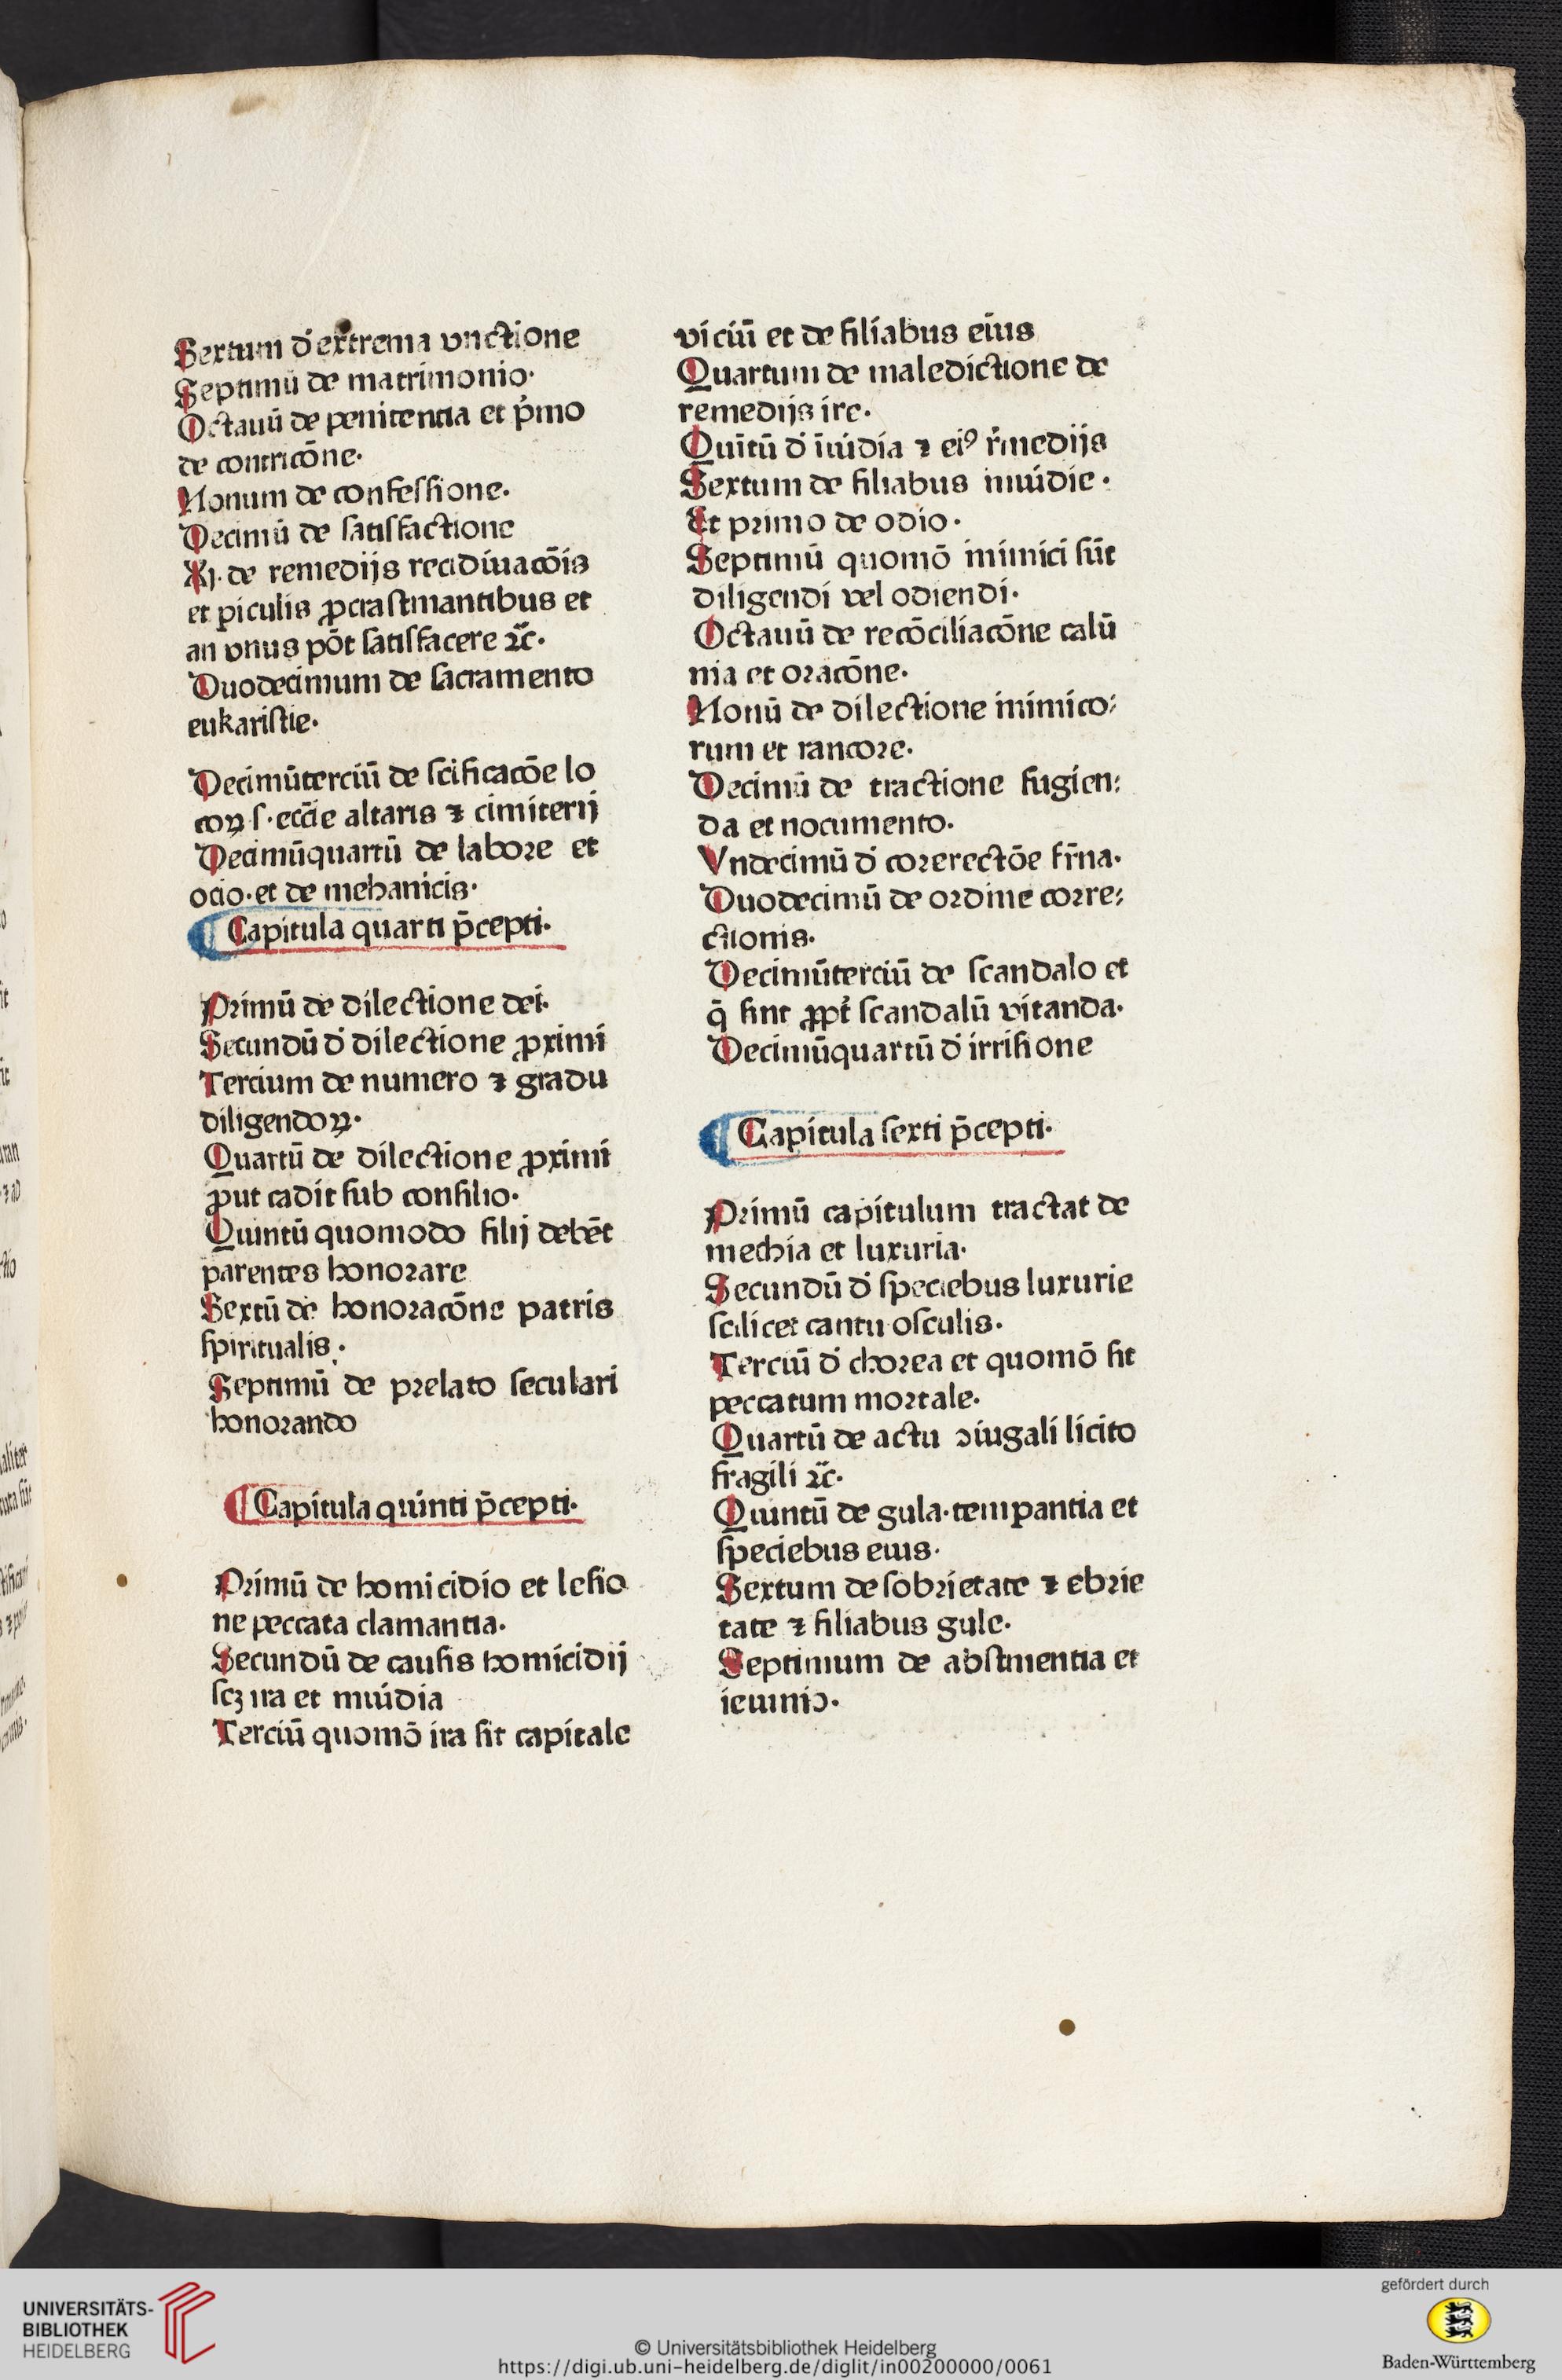 Sextum d̓ extrema vnctione
Septimū de matrimonio·
Octauū de penitentia et p̓mo
de contricōne·
Nonum de confeſſione·
Decimū de ſatiſfactione
Xj· de remedijs recidiuacōis
et piculis ꝓcraſtinantibus et
an vnus pōt ſatiſfacere ⁊c̄·
Duodecimum de ſacramento
eukariſtie·
Decimūterciū de ſcificacōe lo
coꝝ ſ· eccie altaris ⁊ cimiterij
Decimūquartū de labore et
ocio· et de mehanicis·
Capitula quarti p̄cepti·
Primū de dilectione dei·
Secundū d̓ dilectione ꝓximi
Tercium de numero ⁊ gradu
diligendoꝝ·
Quartū de dilectione ꝓximi
ꝓut cadit ſub conſilio·
Quintū quomodo filij debēt
parentes honorare
Sextū de honoracōne patris
ſpiritualis·
Septimū de prelato ſeculari
honorando
Capitula quinti p̄cepti·
Primū de homicidio et leſio
ne peccata clamantia·
Secundū de cauſis homicidij
ſcꝫ ira et inuidia
Terciū quomō ira ſit capitale
viciū et de filiabus eius
Quartum de maledictione de
remedijs ire·
Quītū d̓ īuidia ⁊ eiꝰ r̓medijs
Sextum de filiabus inuidie·
Et primo de odio·
Septimū quomō inimici ſūt
diligendi vel odiendi·
Octauū de recōciliacōne calū
nia et oracōne·
Nonū de dilectione inimico:
rum et rancore·
Decimū de tractione fugien:
da et nocumento·
Vndecimū d̓ corerectōe fr̄na·
Duodecimū de ordine corre:
ctionis·
Decimūterciū de ſcandalo et
q̄ ſint ꝓpt̓ ſcandalū vitanda·
Decimūquartū d̓ irriſione
Capitula ſexti p̄cepti·
Primū capitulum tractat de
mechia et luxuria·
Secundū d̓ ſpeciebus luxurie
ſcilicet cantu oſculis·
Terciū d̓ chorea et quomō ſit
peccatum mortale·
Quartū de actu ꝯiugali licito
fragili ⁊c̄·
Quintū de gula· tempantia et
ſpeciebus eius·
Sextum de ſobrietate ⁊ ebrie
tate ⁊ filiabus gule·
Septimum de abſtinentia et
ieiunio·
UNIVERSITÄTS-
BIBLIOTHEK
HEIDELBERG
© Universitätsbibliothek Heidelberg
https://digi.ub.uni-heidelberg.de/diglit/in00200000/0061
gefördert durch
Baden-Württemberg